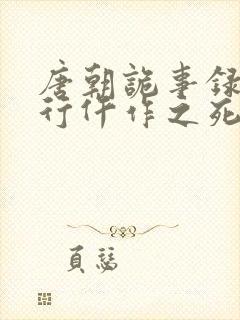 唐朝詭事錄
行仵作之死
頁慧